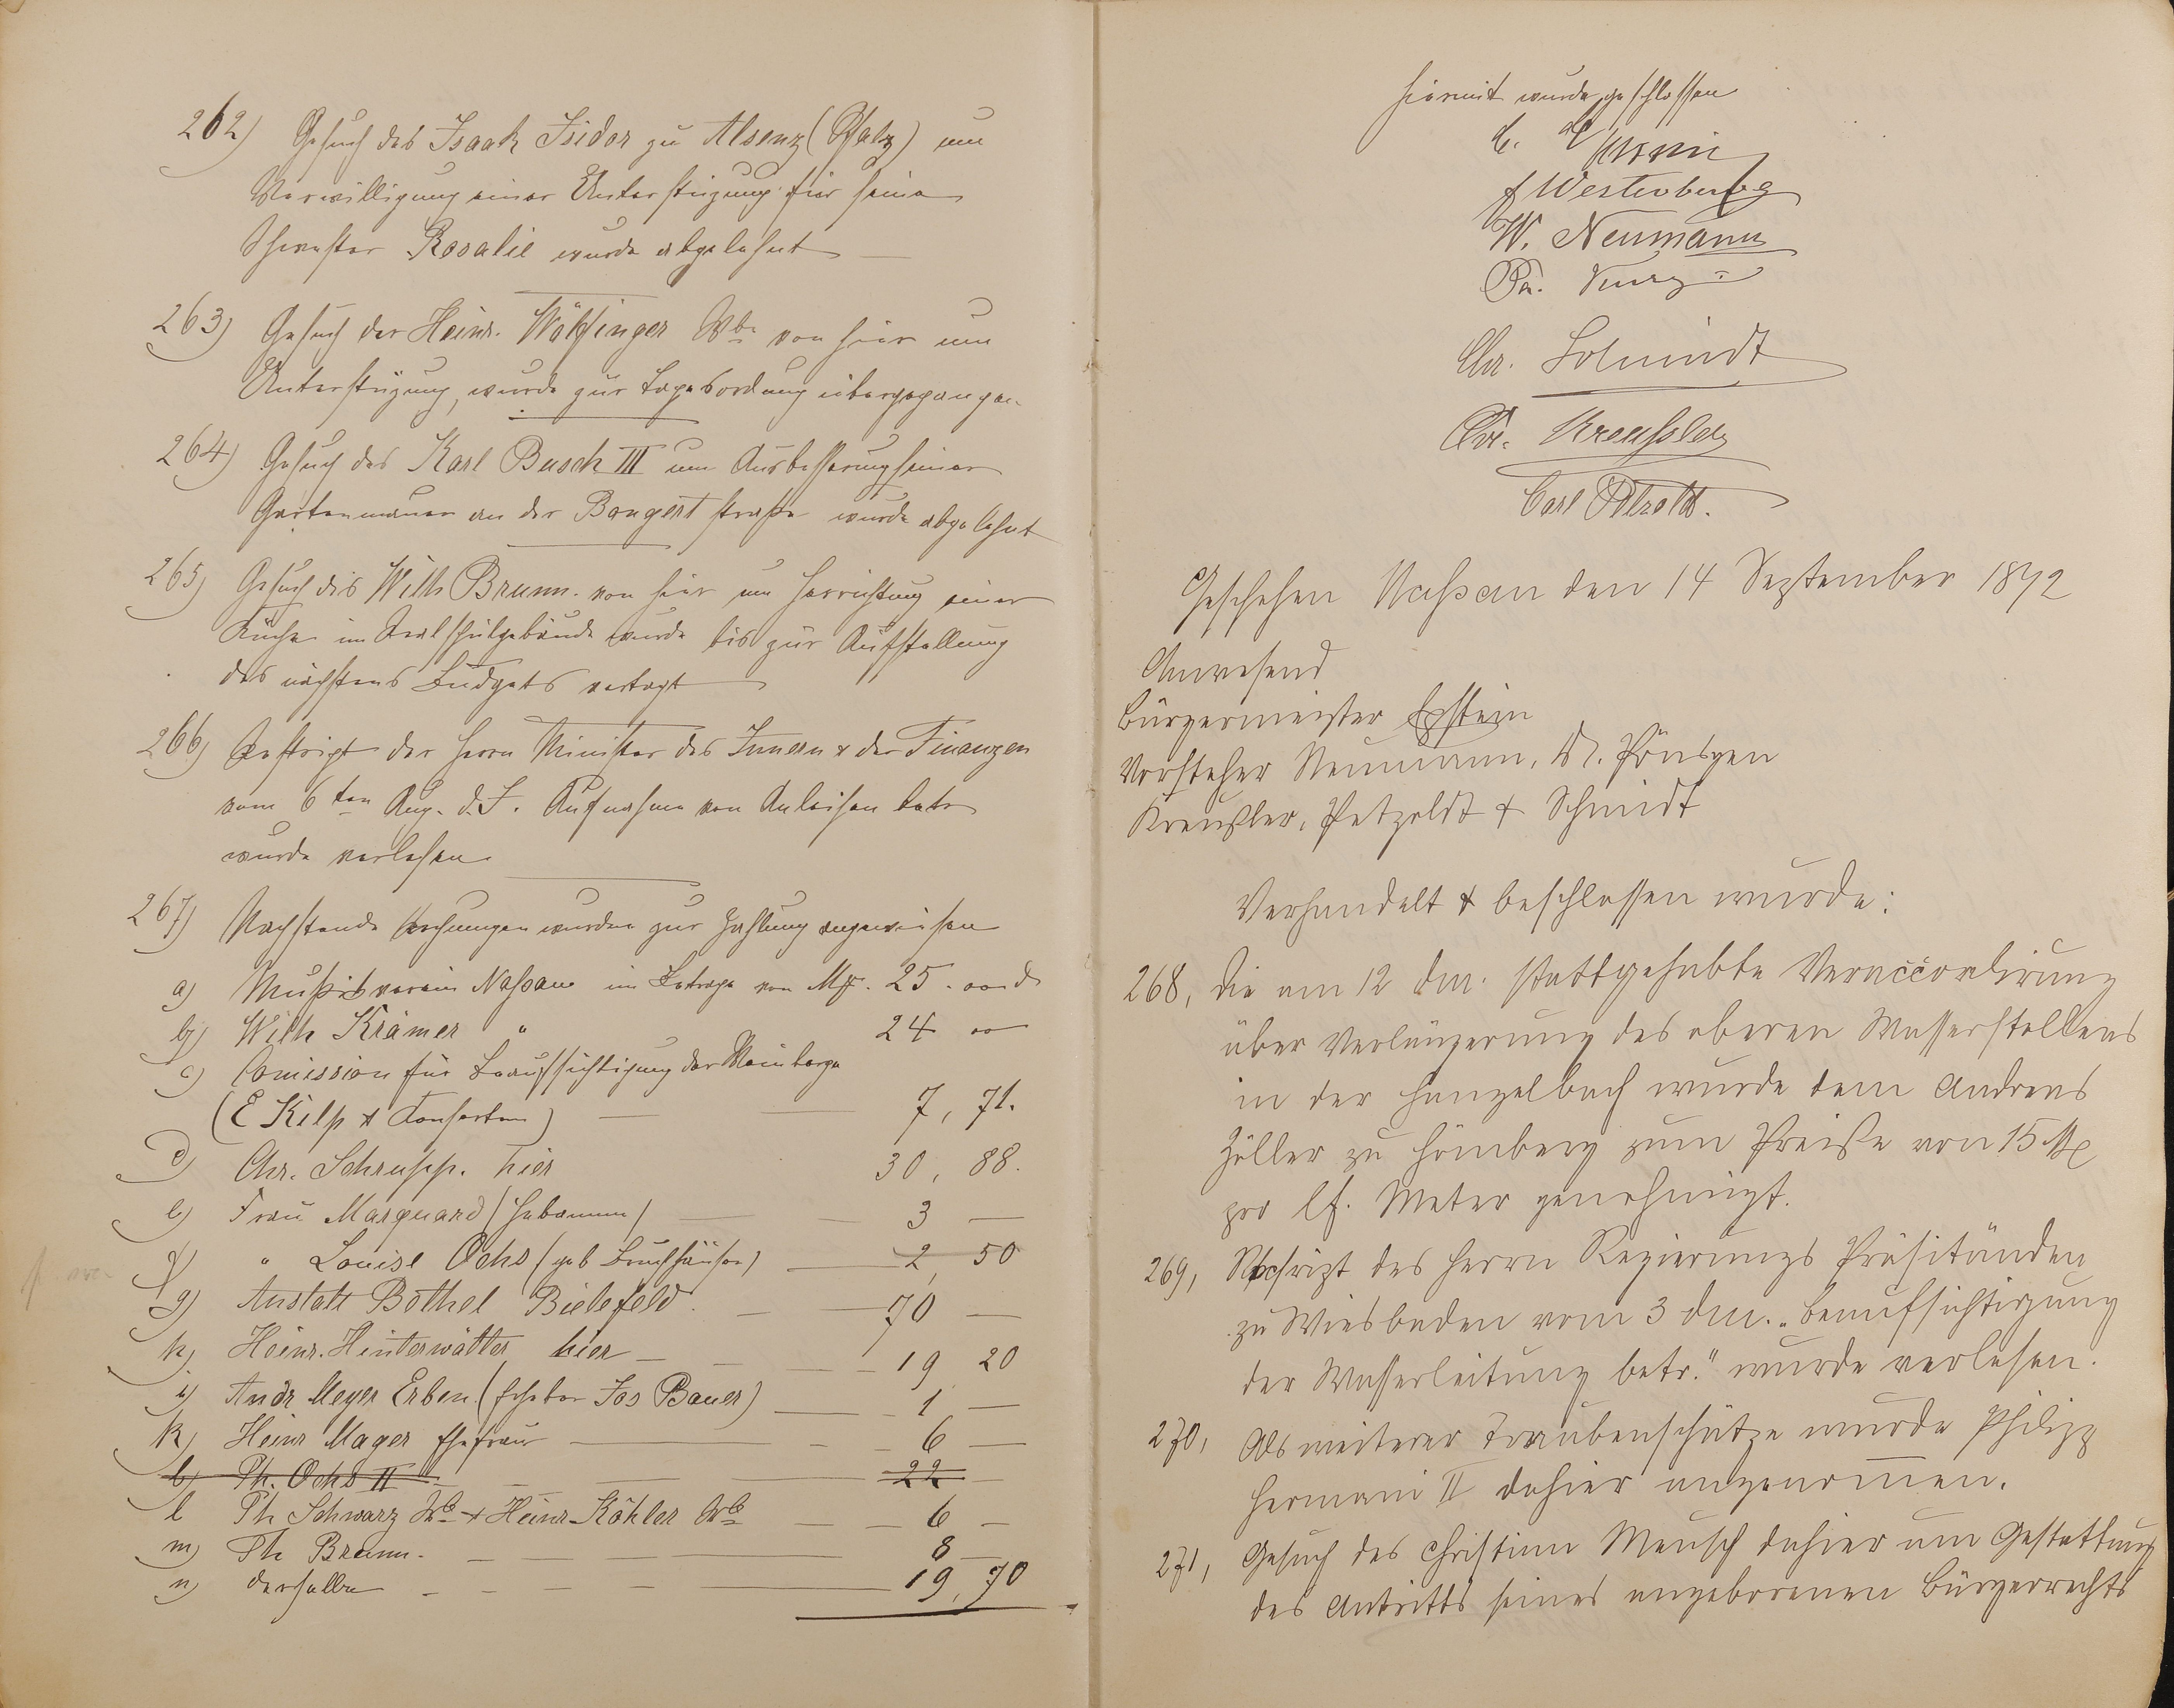 262) Gesuch des Isaak Isidor zu Alsenz (Pfalz) um
Verwilligung einer Unterstüzung für seine
Schwester Rosalie wurde abgelehnt
263) Gesuch der Heinr. Wölfinger Wb. von hier um
Unterstüzung, wurde zur Tagesordnung übergegangen.
264) Gesuch des Karl Busch III um Ausbesserung seiner
Gartenmauer an der Bongert straße wurde abgelehnt
265) Gesuch des Wilh Brunn. von hier um Herrichtung einer
Küche im Realschulgebäude wurde bis zur Aufstellung
des nächstens Budgets vertagt
266) Reskript der Herrn Minister des Innern & der Finanzen
vom 6ten Aug. d. J. Aufnahme von Anleihen betr
wurde verlesen
267) Nachstende Rechnungen wurden zur Zahlung angewiesen
a) Mußikverein Naßau im Betrage von M. 25. 00 d
b) Wilh Krämer " 24 00
c) Comission für Beaufsichtigung der Weinberge
(E Kilp & Consorten) 7, 71.
d) Chr. Schrupp. hier 30, 88.
e) Frau Marquard (Hebamme) 3 —
f) " Louise Ochs (geb Bruchhäuser) 2, 50
g) Anstalt Bethel Bielefeld. 70 —
h) Heinr. Hinterwälter hier 19 20
i) Andr Meyer Erben (Heber Jos Bauer) 1 —
k) Heinr Mager Ehefrau 6 —
l) Ph. Ochs II 22 —
l Ph Schwarz Wb & Heinr. Köhler Wb 6 —
m) Ph Brunn. 8
n) derselbe 19, 70
hiermit wurde geschlossen
F Westerburg
W. Neumann
Kurz
Chr. Schmidt
Chr. Kreußler
Carl Petzoldt.
Geschehen Naßau den 14 September 1892
Anwesend
Bürgermeister Epstein
Vorsteher Neumann, Dr. Pönsgen
Kreußler, Petzoldt & Schmidt
Verhandelt & beschlossen wurde:
268, Die am 12 dM. stattgehabte Veraccordirung
über Verlängerung des oberen Wasserstollens
in der Hanzelbach wurde dem Andreas
Zöller zu Hömberg zum Preiße von 15 M
pro lf. Meter genehmigt.
269, Rescript des Herrn Regierungs Präsidänden
zu Wiesbaden vom 3 dM. „Beaufsichtigung
der Wasserleitung betr." wurde verlesen.
270, Als weiterer Traubenschütze wurde Philipp
Hermani II dahier angenommen.
271, Gesuch des Christian Meusch dahier um Gestattung
des Antritts seines angeborenen Bürgerrechts